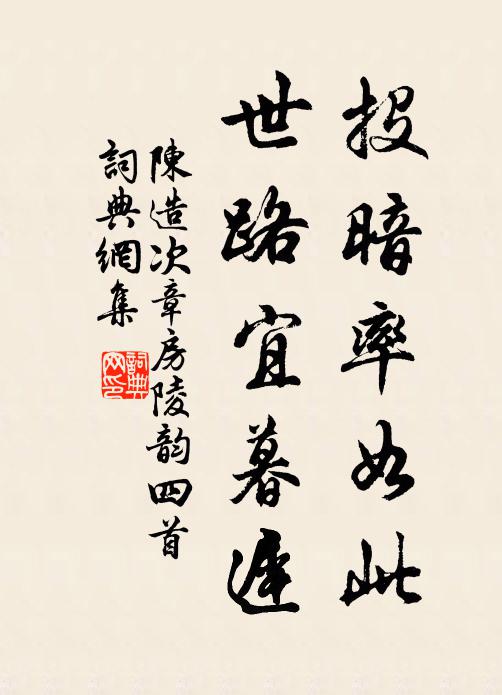 投暗率如此
世路宜暮遲
陳造次章房陵韵四首
詞典網集
詞典網印